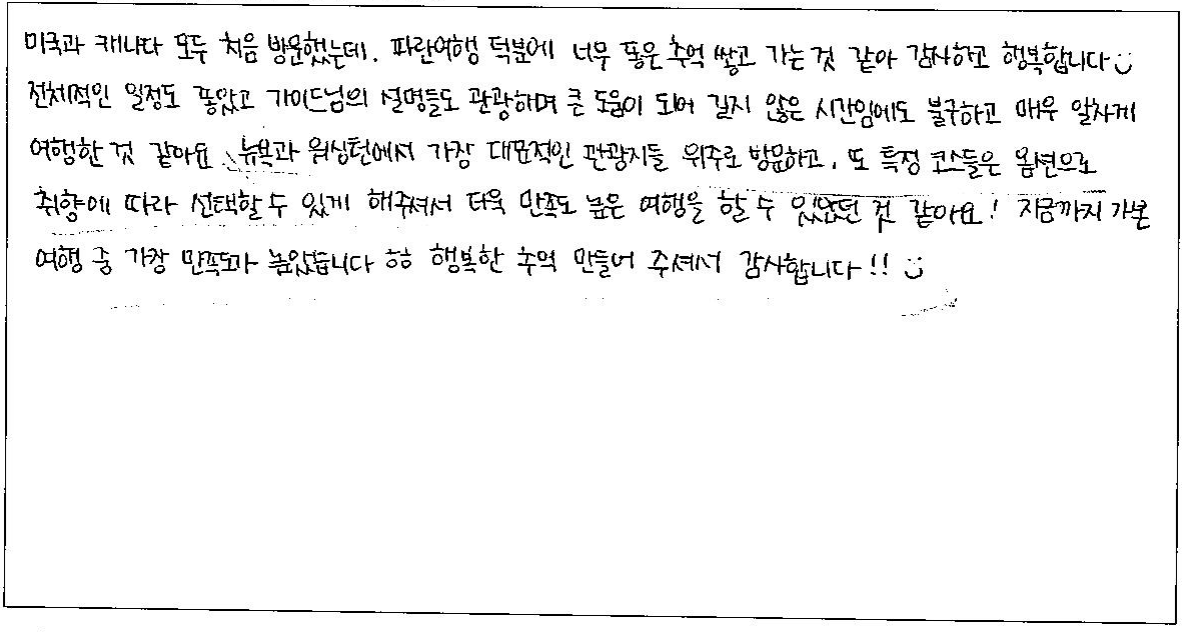 미국과 캐나다 모두 처음 방문했는데, 파란여행 덕분에 너무 좋은 추억 쌓고 가는 것 같아 감사하고 행복합니다 :)
전체적인 일정도 좋았고 가이드님의 설명들도 관광하며 큰 도움이 되어 길지 않은 시간임에도 불구하고 매우 알차게
여행한 것 같아요. 뉴욕과 워싱턴에서 가장 대표적인 관광지들 위주로 방문하고, 또 특정 코스들은 옵션으로
취향에 따라 선택할 수 있게 해주셔서 더욱 만족도 높은 여행을 할 수 있었던 것 같아요! 지금까지 가본
여행 중 가장 만족도가 높았습니다 ㅎㅎ 행복한 추억 만들어 주셔서 감사합니다!! :)